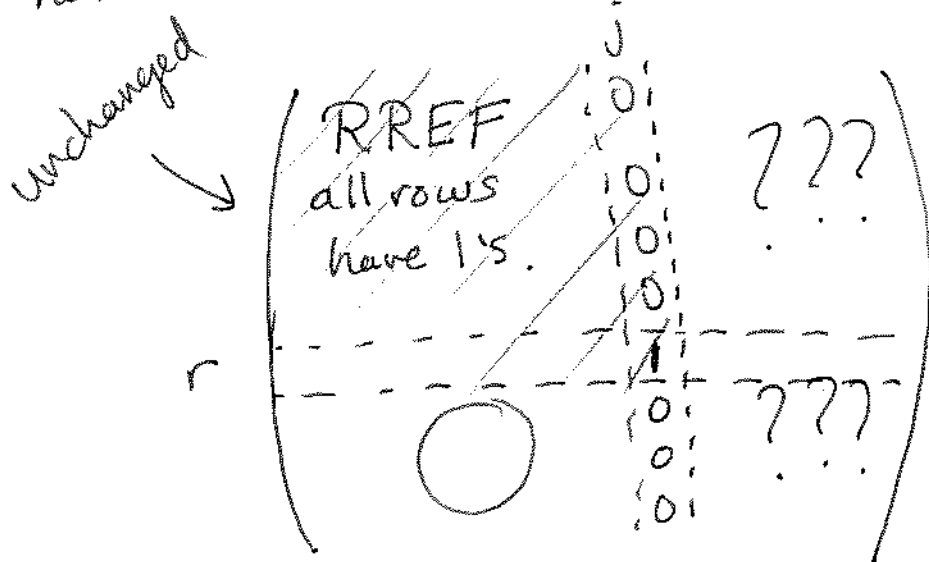 j
unchanged
0
RREF
???
all rows
0
have 1's.
0
0
1
r
0
???
0
0
0